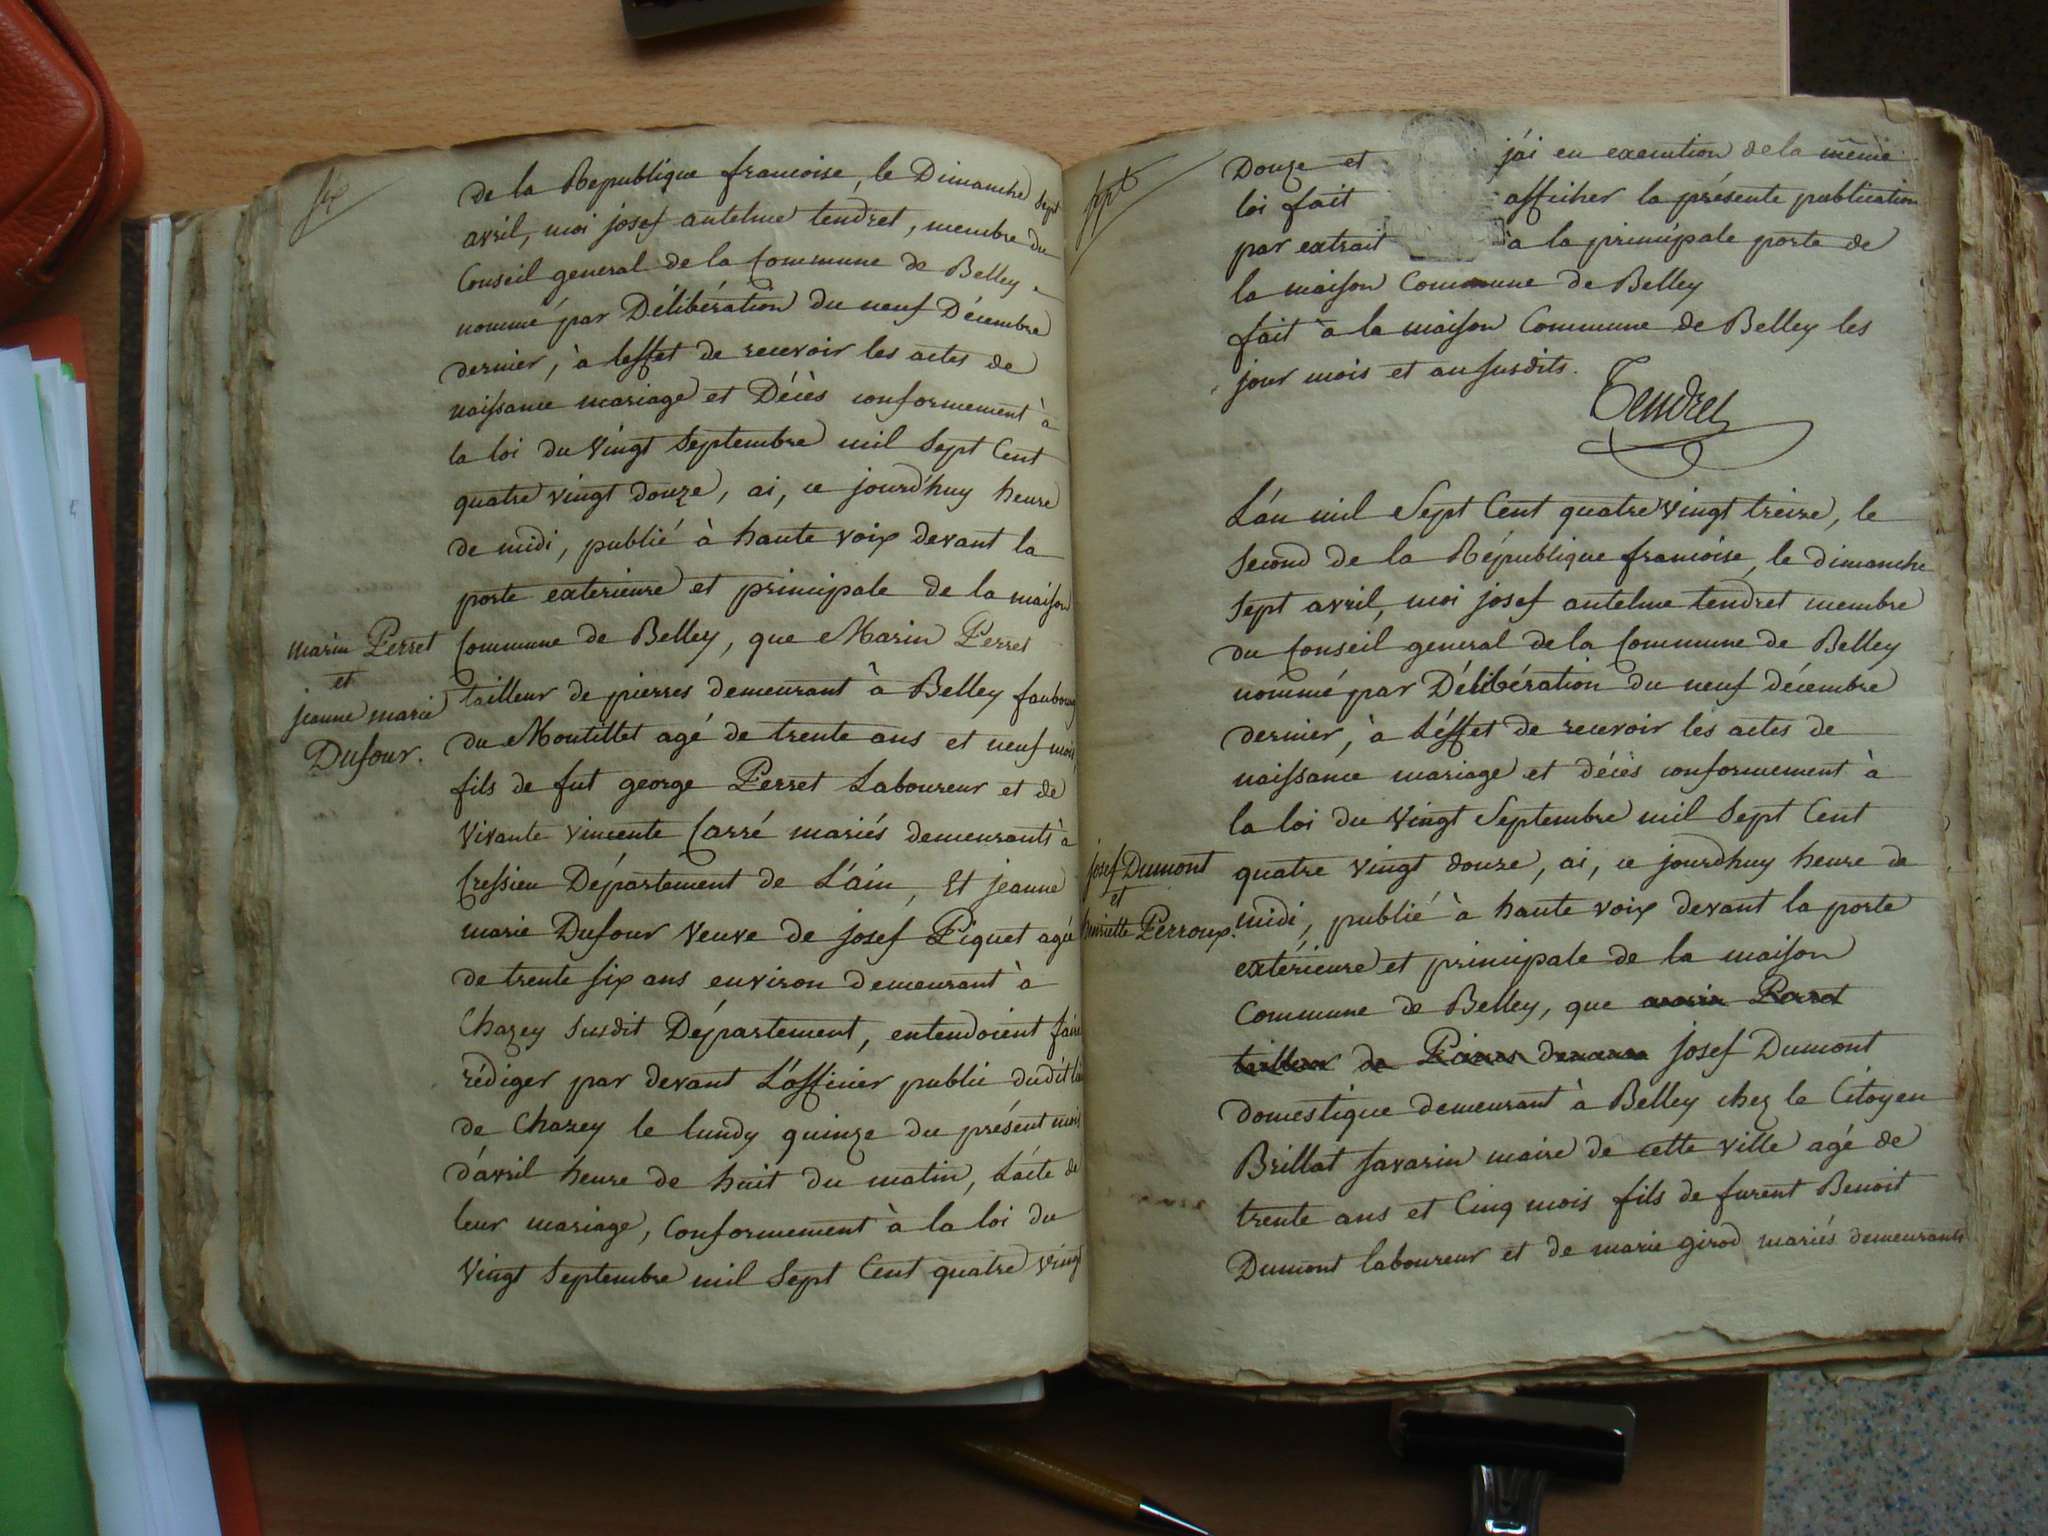 six
de la République francoise, le Dimanche sept
avril, moi josef antelme tendret, membre du
Conseil general de la Commune de Belley
nommé par Délibération du neuf Décembre
dernier, à leffet de recevoir les actes de
naissance mariage et Décès conformement à
la loi du vingt septembre mil sept Cent
quatre vingt douze, ai, ce jourd'huy heure
de midi, publié à haute voix devant la
porte exterieure et principale de la maison
Commune de Belley, que Marin Perret
tailleur de pierres demeurant à Belley faubourg
du Montillet agé de trente ans et neuf mois
fils de fut george Perret Laboureur et de
Vivante vincente Carré mariés demeurants à
Cressieu Département de L'ain, Et jeanne
marie Dufour Veuve de josef Piquet agée
de trente six ans environ demeurant à
Chazey susdit Département, entendoient faire
rédiger par devant L'officier public dudit lieu
de Chazey le lundy quinze du présent mois
d'avril heure de huit du matin, L'acte de
leur mariage, Conformement à la loi du
Vingt septembre mil sept Cent quatre vingt
marin Perret
et
jeanne marie
Dufour.
sept
Douze et j'ai en execution de la même
loi fait afficher la présente publication
par extrait à la principale porte de
la maison Commune de Belley
fait à la maison Commune de Belley les
jour mois et an susdits.
Tendret
L'an mil Sept Cent quatre vingt treize, le
second de la République francoise, le dimanche
sept avril, moi josef antelme tendret membre
du Conseil general de la Commune de Belley
nommé par Délibération du neuf décembre
dernier, à L'effet de recevoir les actes de
naissance mariage et décès conformement à
la loi du vingt Septembre mil sept Cent
quatre vingt douze, ai, ce jourdhuy heure de
midi, publié à haute voix devant la porte
extérieure et principale de la maison
Commune de Belley, que marin Perret
tailleur de Pierres demeurant josef Dumont
domestique demeurant à Belley chez le Citoyen
Brillat savarin maire de cette ville agé de
trente ans et Cinq mois fils de furent Benoit
Dumont laboureur et de marie girod mariés demeurants
josef Dumont
et
henriette Perroux.